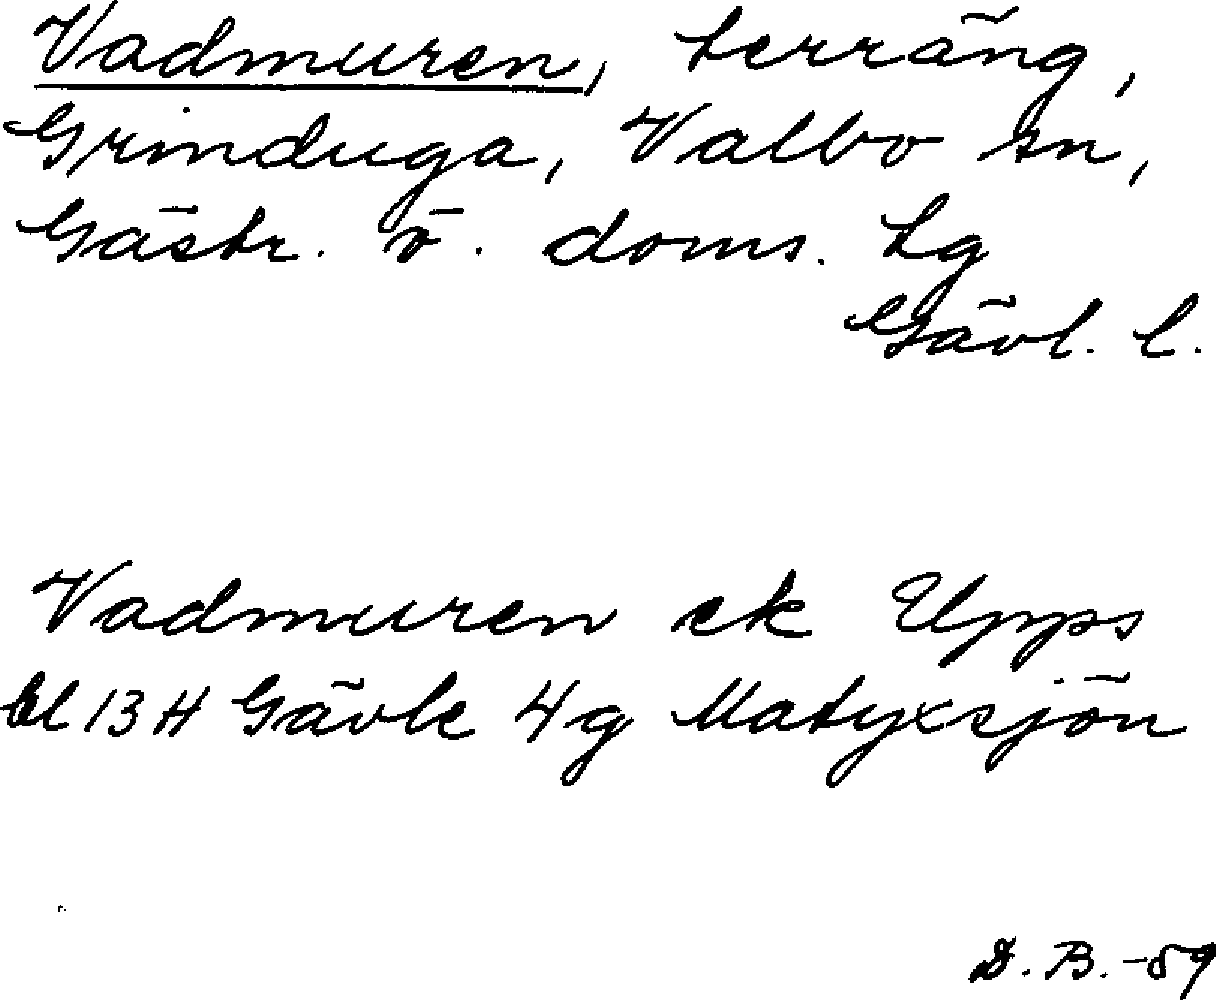 Vadmuren, terräng,
Grinduga, Valbo sn,
Gästr. ö. doms. tg
Gävl. l.
Vadmuren ek Upps
bl 13 H Gävle 4g Matyxsjön
D. B. -59